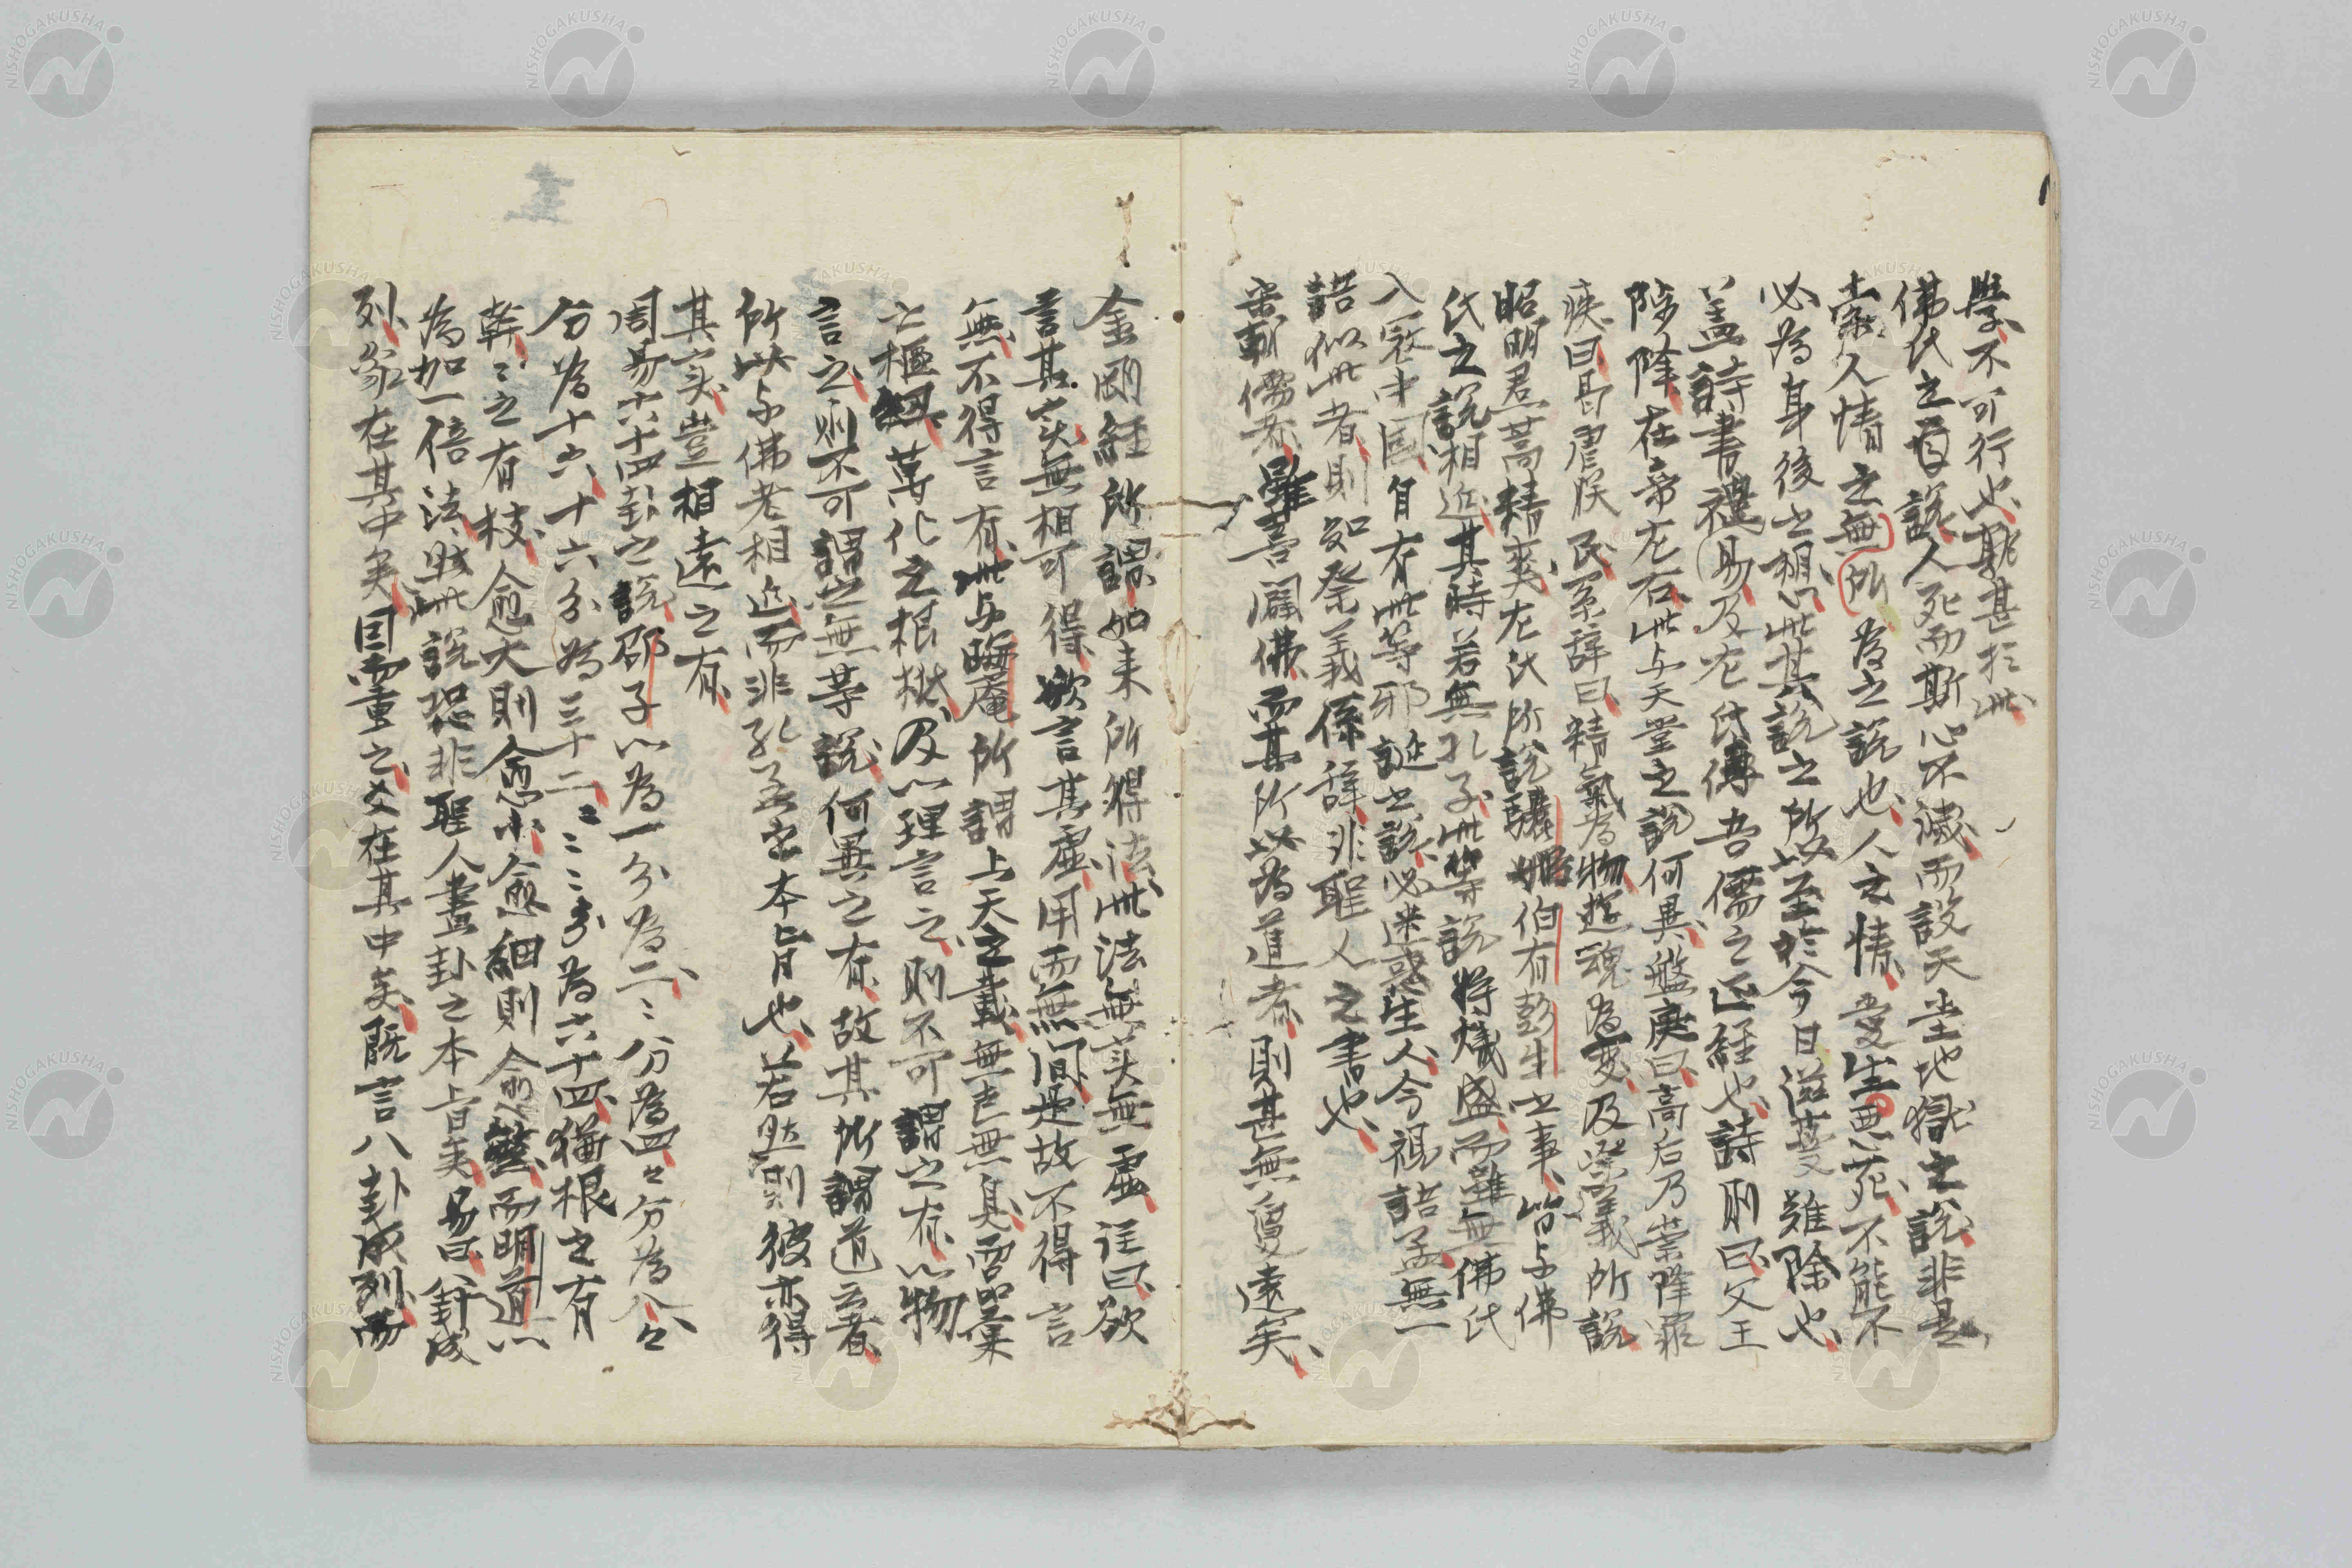 學不可行也孰甚於此
佛氏之有說人死而斯心不滅而設天堂地獄之說非是
人情之無所為之說也人之情愛生惡死不能不
必為身後之想此其說之所以至於今日滋蔓難除也
蓋詩書禮易及左氏傳吾儒之正經也詩則曰文王
陟降在帝左右此与天堂之說何異盤庚曰高后乃崇降罪
疾曰曷虐朕民系辞曰精氣為物遊魂為変及祭義所說
昭明焄蒿精爽左氏所說驪姬伯有彭生之事皆与佛
氏之說相近其時若無孔子此等說将熾盛而雖無佛氏
入寇中国自有此等邪誕之說必迷惑生人今視語孟無一
語似此者則知祭義係辞非聖人之書也
宋朝儒者雖善闢佛而其所以為道者則甚無夐遠矣
金剛經所謂如来所得法此法無实無虛註曰欲
言其实無相可得欲言其虛用而無间是故不得言
無不得言有此与晦庵所謂上天之載無声無臭而品彙
之樞紐萬化之根柢及以理言之則不可謂之有以物
言之則不可謂之無等說何異之有故其所謂道云者
所以与佛老相近而非孔孟之本旨也若然則彼亦得
其实豈相遠之有
周易六十四卦之說邵子以為一分為二二分為四々分為八々
分為十六十六分為三十二三十二分為六十四猶根之有
幹々之有枝愈大則愈小愈細則愈繁而明道以
為加一倍法然此說恐非聖人畫卦之本旨矣易曰八卦成
列象在其中矣因而重之爻在其中矣既言八卦成列而